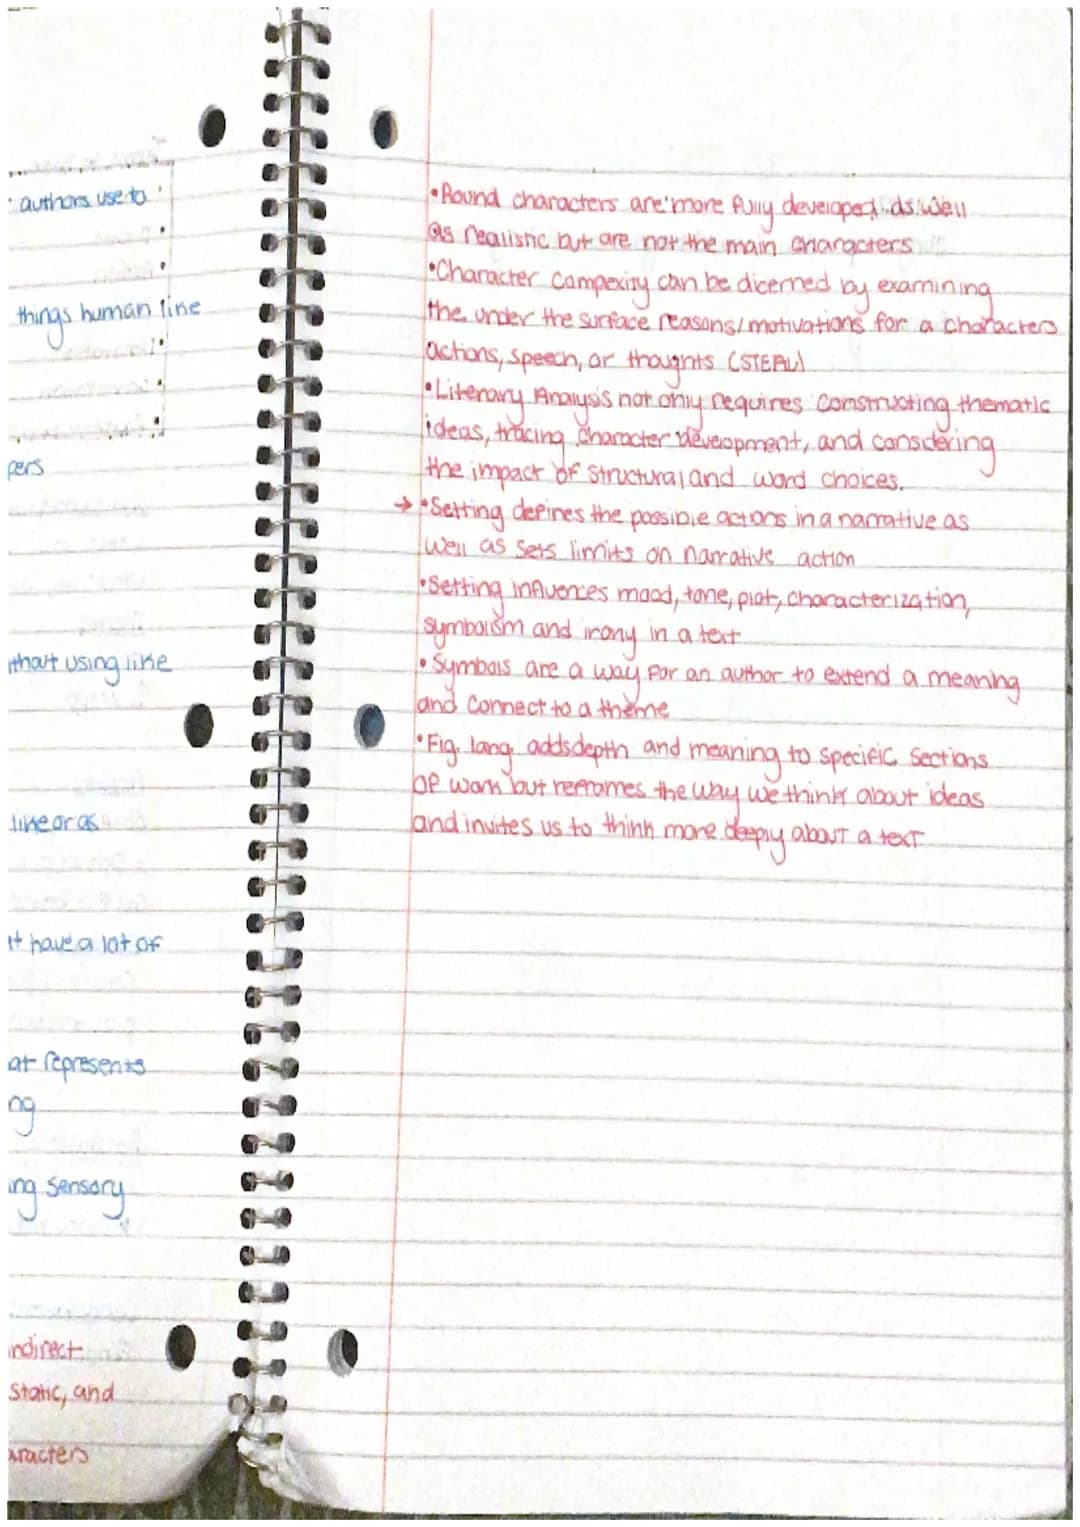 authors use to
things human like
pers
ithout using like
like or as
it have a lot of
at represents
ng
ing sensory
indirect
static, and
aracters
•Round characters are more fully developed as well
as realistic but are not the main characters
•Character compexity can be dicerned by examining
the under the surface reasons/motivations for a characters
actions, speech, or thoughts (STEAL)
•Literary Analysis not only requires constructing thematic
ideas, tracing character development, and considering
the impact of structural and word choices.
→ •Setting defines the possible actions in a narrative as
well as sets limits on narrative action
•Setting influences mood, tone, plot, characterization,
symbolism and irony in a text
•Symbols are a way for an author to extend a meaning
and connect to a theme
•Fig. lang. adds depth and meaning to specific sections
of work but reframes the way we think about ideas
and invites us to think more deeply about a text